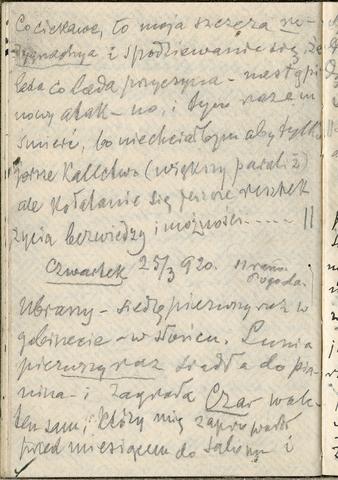 Co ciekawe, to moja szczera re-
zygnacja i spodziewanie się, że
lada co lada przyczyna - nastąpi
nowy atak - no, i tym razem
śmierć, bo nie chciałbym aby tylko
kalectwo (większy paraliż)
ale kołatanie się resztek
życia bez wiedzy i możności..... ||
Czwartek 25/3 920. 11 rano.
Pogoda.
Ubrany - siedzę pierwszy raz w
gabinecie - w słońcu. Lunia
pierwszy raz siadła do pia-
nina - i zagrała Czar walc -
ten sam, który mię zaprowadził
przed miesiącem do salonu i